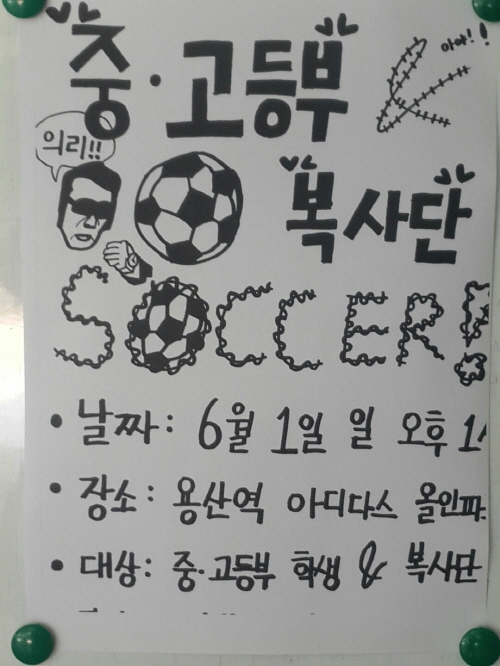 중·고등부
아야!!
의리!!
복사단
SOCCER!
• 날짜: 6월 1일 일 오후 1
• 장소: 용산역 아디다스 올인파
• 대상: 중·고등부 학생 & 복사단